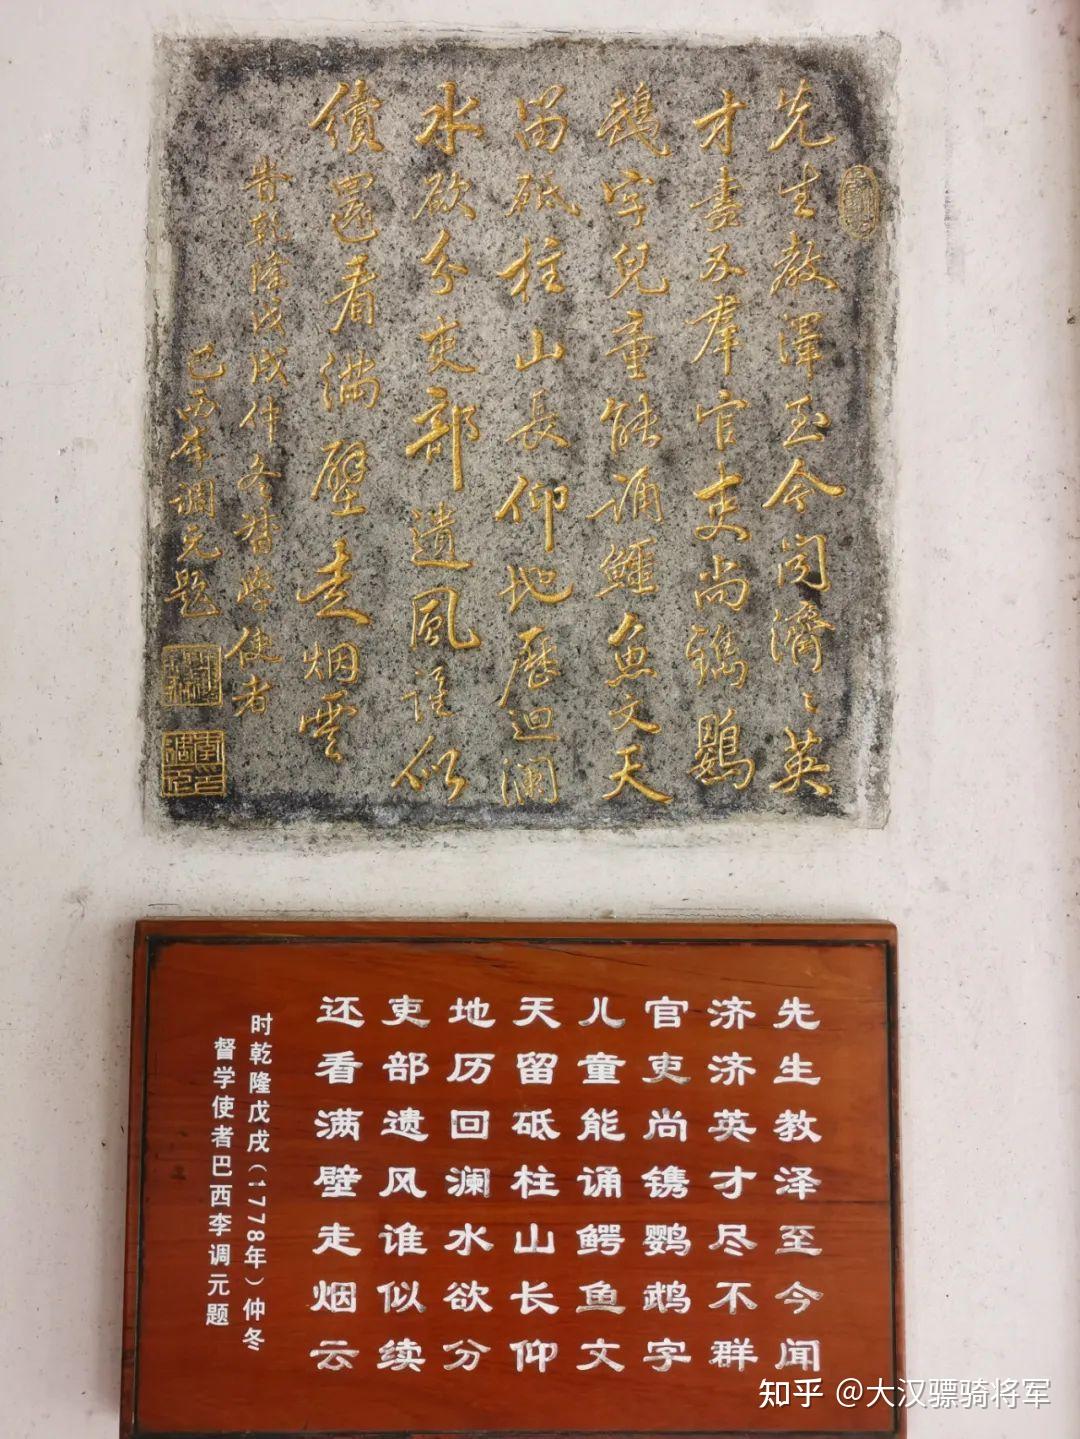 先生教澤至今闻濟々英
才盡不羣官吏尚鐫鸚
鵡字兒童能诵鱷魚文天
留砥柱山長仰地歷迴瀾
水欲分吏部遺風谁似
續還看满壁走烟雲
旹乾隆戊戌仲冬督學使者
巴西李调元题
先生教泽至今闻
济济英才尽不群
官吏尚镌鹦鹉字
儿童能诵鳄鱼文
天留砥柱山长仰
地历回澜水欲分
吏部遗风谁似续
还看满壁走烟云
时乾隆戊戌(1778年)仲冬
督学使者巴西李调元题
知乎 @大汉骠骑将军